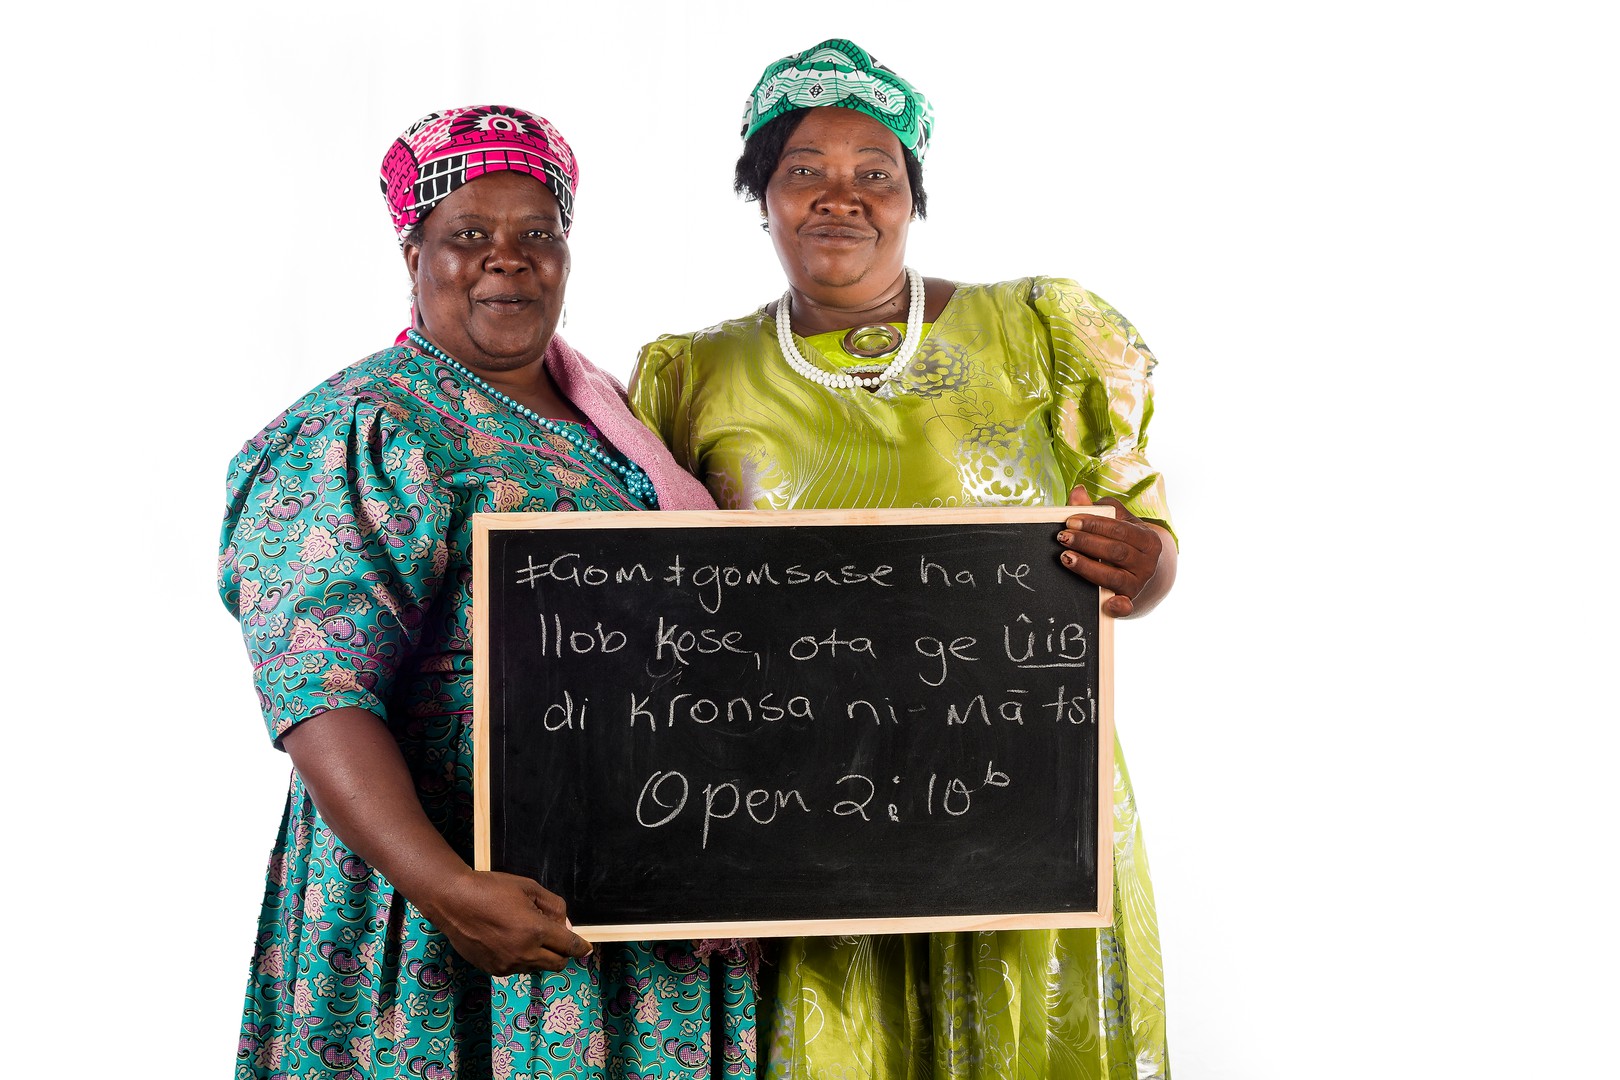 ǂGom ǂgomsase ha re
llob kose, ota ge ÛiB
di kronsa ni-Mā tsi
Open 2:10ᵇ